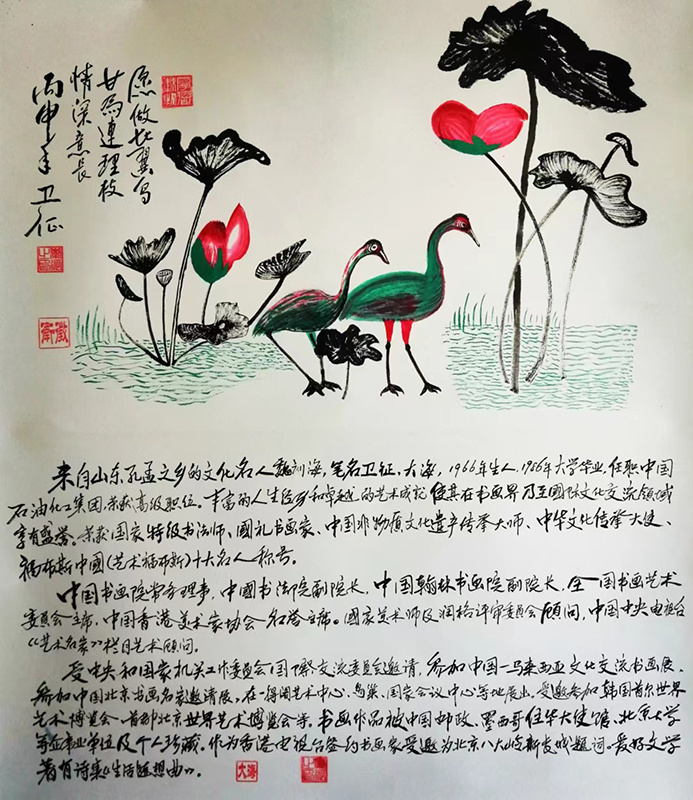 愿做比翼鸟
甘为連理枝
情深意長
丙申年卫征
来自山东孔孟之乡的文化名人魏训海,笔名卫征、大海,1966年生人,1986年大学毕业,任职中国
石油化工集团,荣获高级职位。丰富的人生经历和卓越的艺术成就使其在书画界乃至國际文化交流领域
享有盛誉。荣获国家特级书法师、國礼书画家、中国非物质文化遗产传挙大师、中华文化传挙大使、
福布斯中國(艺术福布斯)十大名人称号。
中国书画院常务理事,中國书法院副院长,中国翰林书画院副院长,全国书画艺术
委员会主席,中国香港美术家协会名誉主席。國家美术师及润格评审委员会顾问,中国中央电视台
《艺术名家》栏目艺术顾问。
受中央和国家机关工作委员会国際交流委员会邀请,参加中国—马来西亚文化交流书画展、
参加中国北京书画名家邀请展,在一得阁艺术中心、鸟巢、国家会议中心等地展出,受邀参加韩国首尔世界
艺术博览会、首都北京世界艺术博览会等。书画作品被中国邮政、墨西哥住华大使馆、北京大学
等企事业单位及个人珍藏。作为香港电视台签约书画家受邀为北京八大岭斯宾城题词。爱好文学
著有诗集《生活随想曲》。
大海